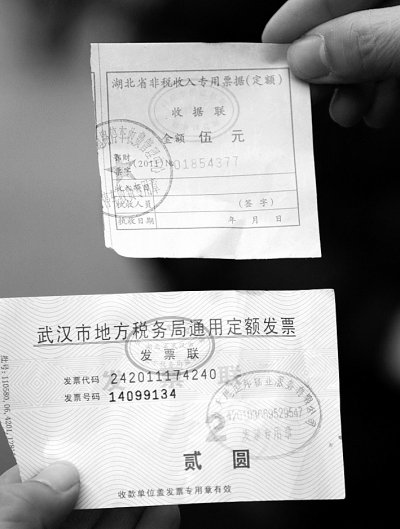 湖北省非税收入专用票据(定额)
收据联
金额 伍 元
(2011)No 01854377
执收项目
执收人员 (签字)
执收日期 年 月 日
武汉市地方税务局通用定额发票
发票联
发票代码 242011174240
发票号码 14099134
发票专用章
贰 圆
收款单位盖发票专用章有效